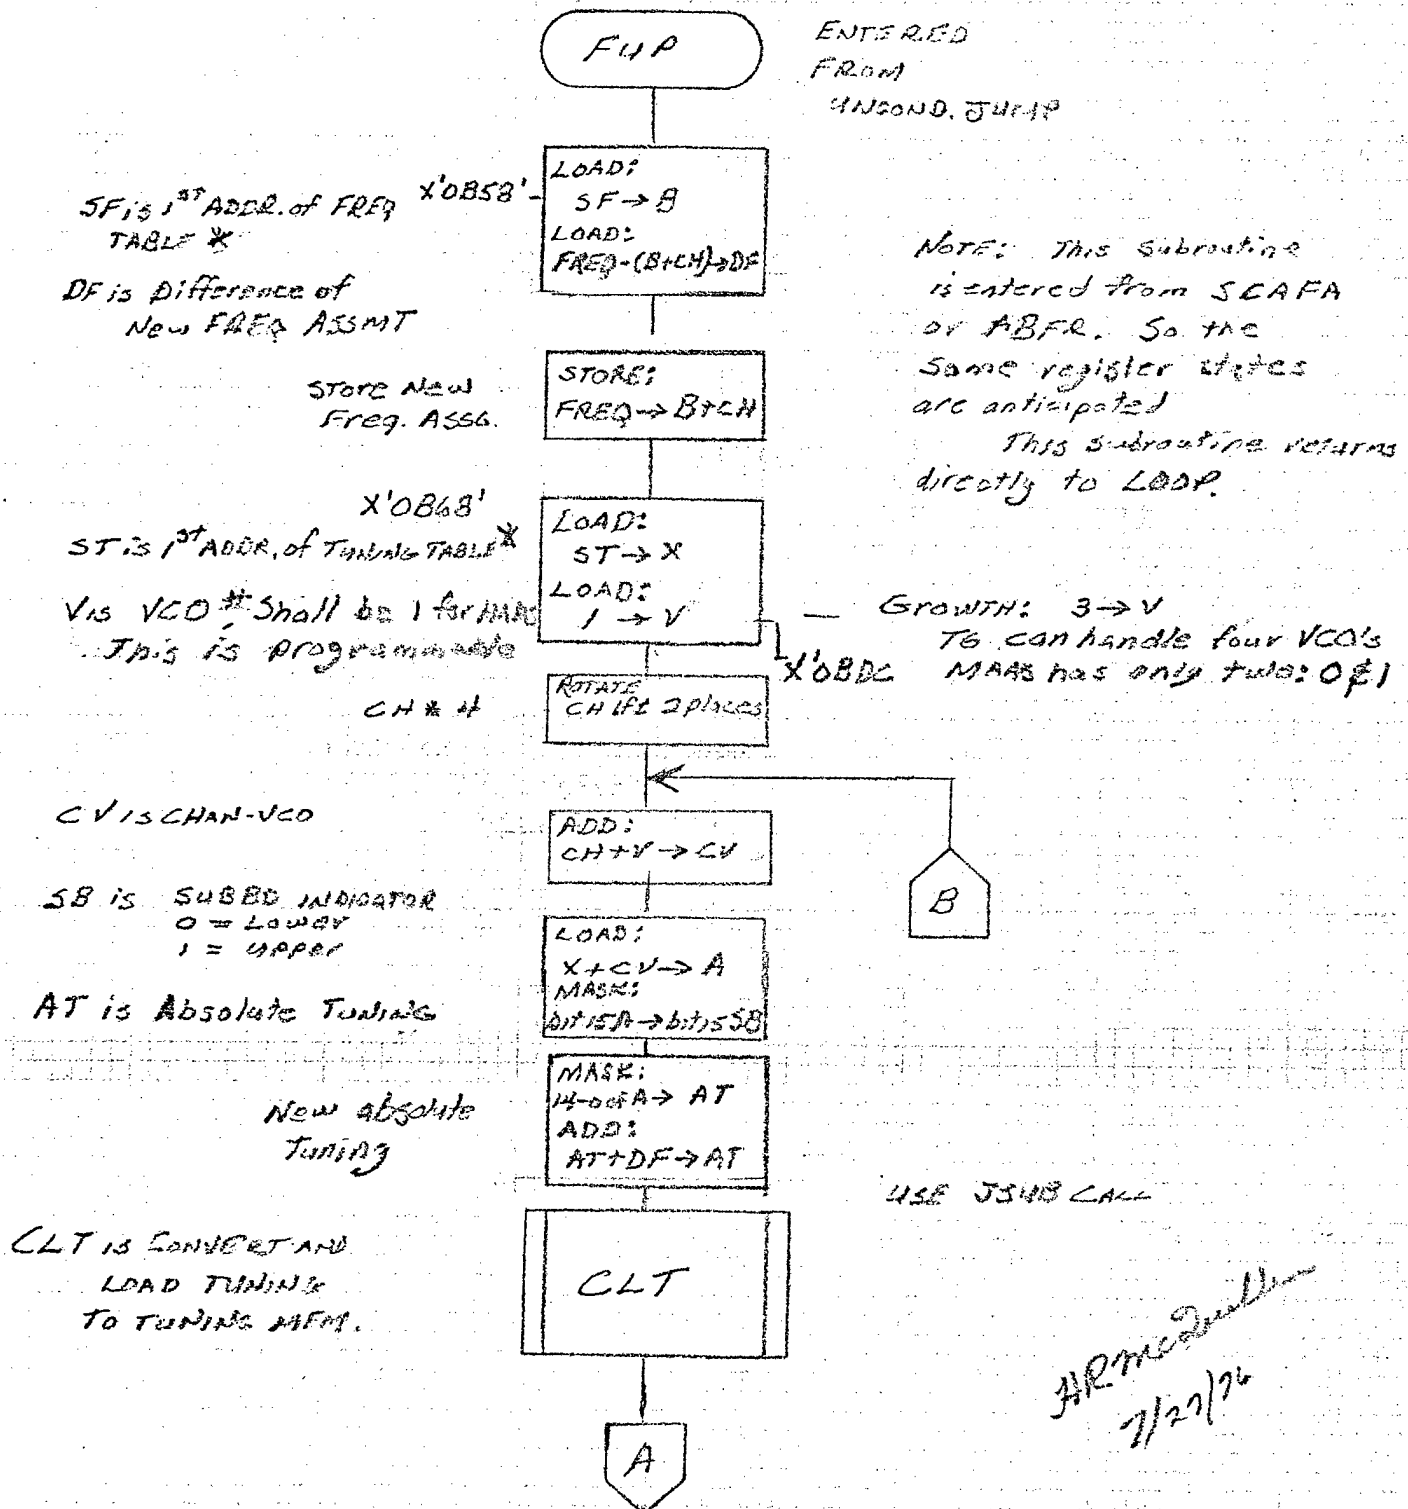 FUP
ENTERED
FROM
UNCOND. JUMP
SF is 1ST ADDR. of FREQ
TABLE *
X'0B5B'
LOAD:
SF → B
LOAD:
FREQ-(B+CH)→DF
DF is Difference of
New FREQ ASSMT
NOTE: This subroutine
is entered from SCAFA
or ABFR. So the
Same register states
are anticipated
This subroutine returns
directly to LOOP.
Store New
Freq. ASSG.
STORE:
FREQ → B+CH
X'0B6B'
ST is 1ST ADDR. of TUNING TABLE *
V is VCO #. Shall be 1 for MAAS
This is programmable
LOAD:
ST → X
LOAD:
1 → V
X'0BDC
— GROWTH: 3 → V
TG can handle four VCO's
MAAS has only two: 0 & 1
CH * 4
ROTATE
CH lft 2 places
CV IS CHAN-VCO
ADD:
CH+V → CV
B
SB is SUBBD INDICATOR
0 = Lower
1 = Upper
LOAD:
X+CV → A
MASK:
bit 15A → bit 15 SB
AT is Absolute TUNING
New absolute
Tuning
MASK:
14-0 of A → AT
ADD:
AT+DF → AT
USE JSUB CALL
CLT IS CONVERT AND
LOAD TUNING
TO TUNING MFM.
CLT
A
HR McQuillen
7/27/76